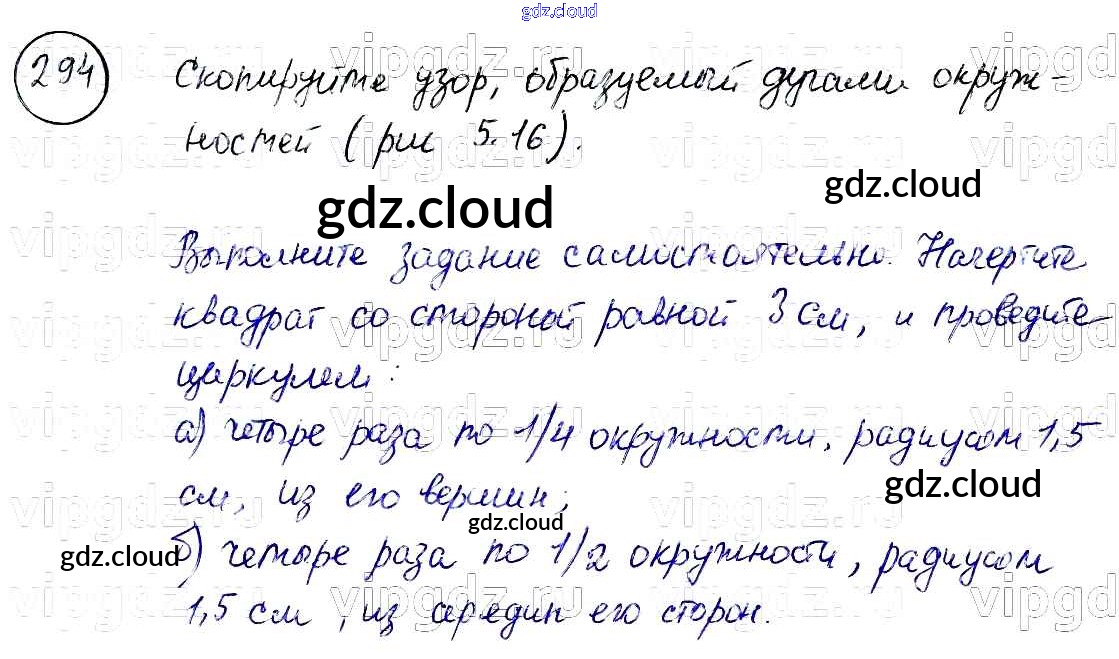 gdz.cloud
294 Скопируйте узор, образуемый дугами окруж-
ностей (рис 5.16).
gdz.cloud
gdz.cloud
Выполните задание самостоятельно. Начертите
квадрат со стороной равной 3 см, и проведите
циркулем:
а) четыре раза по 1/4 окружности, радиусом 1,5
gdz.cloud
см, из его вершин;
gdz.cloud
gdz.cloud
б) четыре раза по 1/2 окружности, радиусом
1,5 см, из середин его сторон.